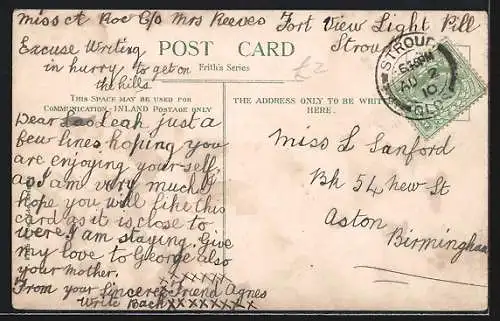 miss A Roe C/o Mrs Reeves Fort View Light Pill
Stroud
Excuse Writing
in hurry to get on
the hills
POST CARD
Frith's Series
£2
THIS SPACE MAY BE USED FOR
COMMUNICATION—INLAND POSTAGE ONLY
THE ADDRESS ONLY TO BE WRITTEN
HERE.
STROUD
AU 2
10
Dear Leah just a
few lines hoping you
are enjoying your self,
as I am very much I
hope you will like this
card as it is close to
were I am staying. Give
my love to George also
your mother.
From your Sincere Friend Agnes
Write Back xxxxxxxx
Miss L Sanford
Bh 54 New St
Aston
Birmingham